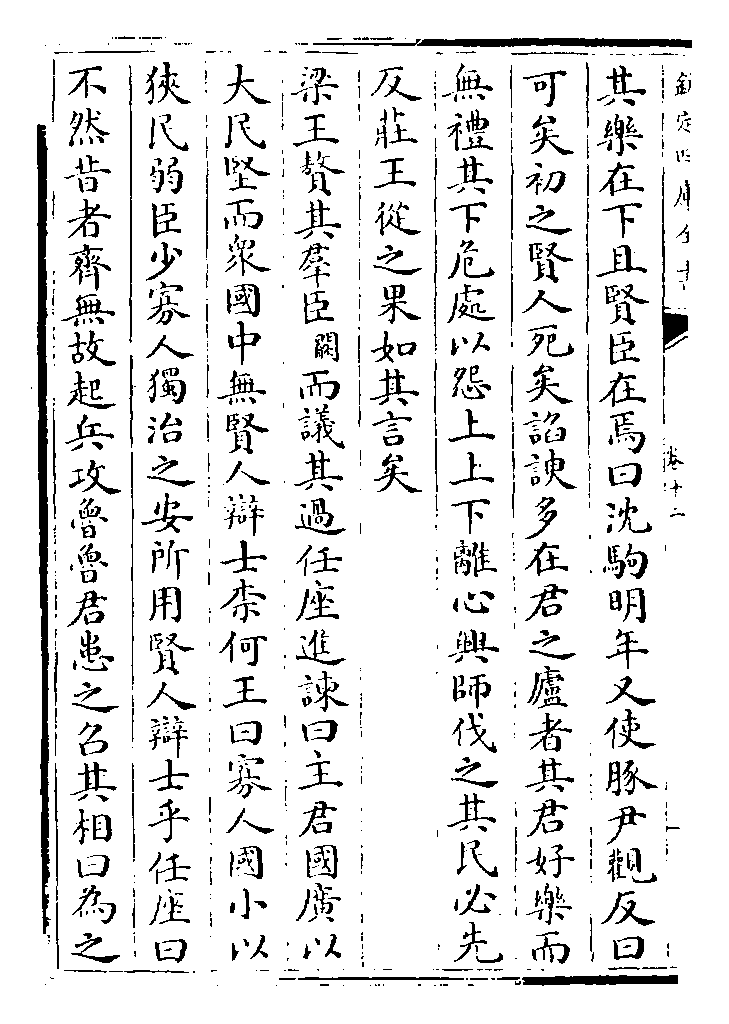 欽定四庫全書
卷十二
其樂在下且賢臣在焉曰沈駒明年又使豚尹觀反曰
可矣初之賢人死矣諂諛多在君之廬者其君好樂而
無禮其下危處以怨上上下離心興師伐之其民必先
反莊王從之果如其言矣
梁王贅其羣臣闕而議其過任座進諫曰主君國廣以
大民堅而衆國中無賢人辯士柰何王曰寡人國小以
狹民弱臣少寡人獨治之安所用賢人辯士乎任座曰
不然昔者齊無故起兵攻魯魯君患之召其相曰為之